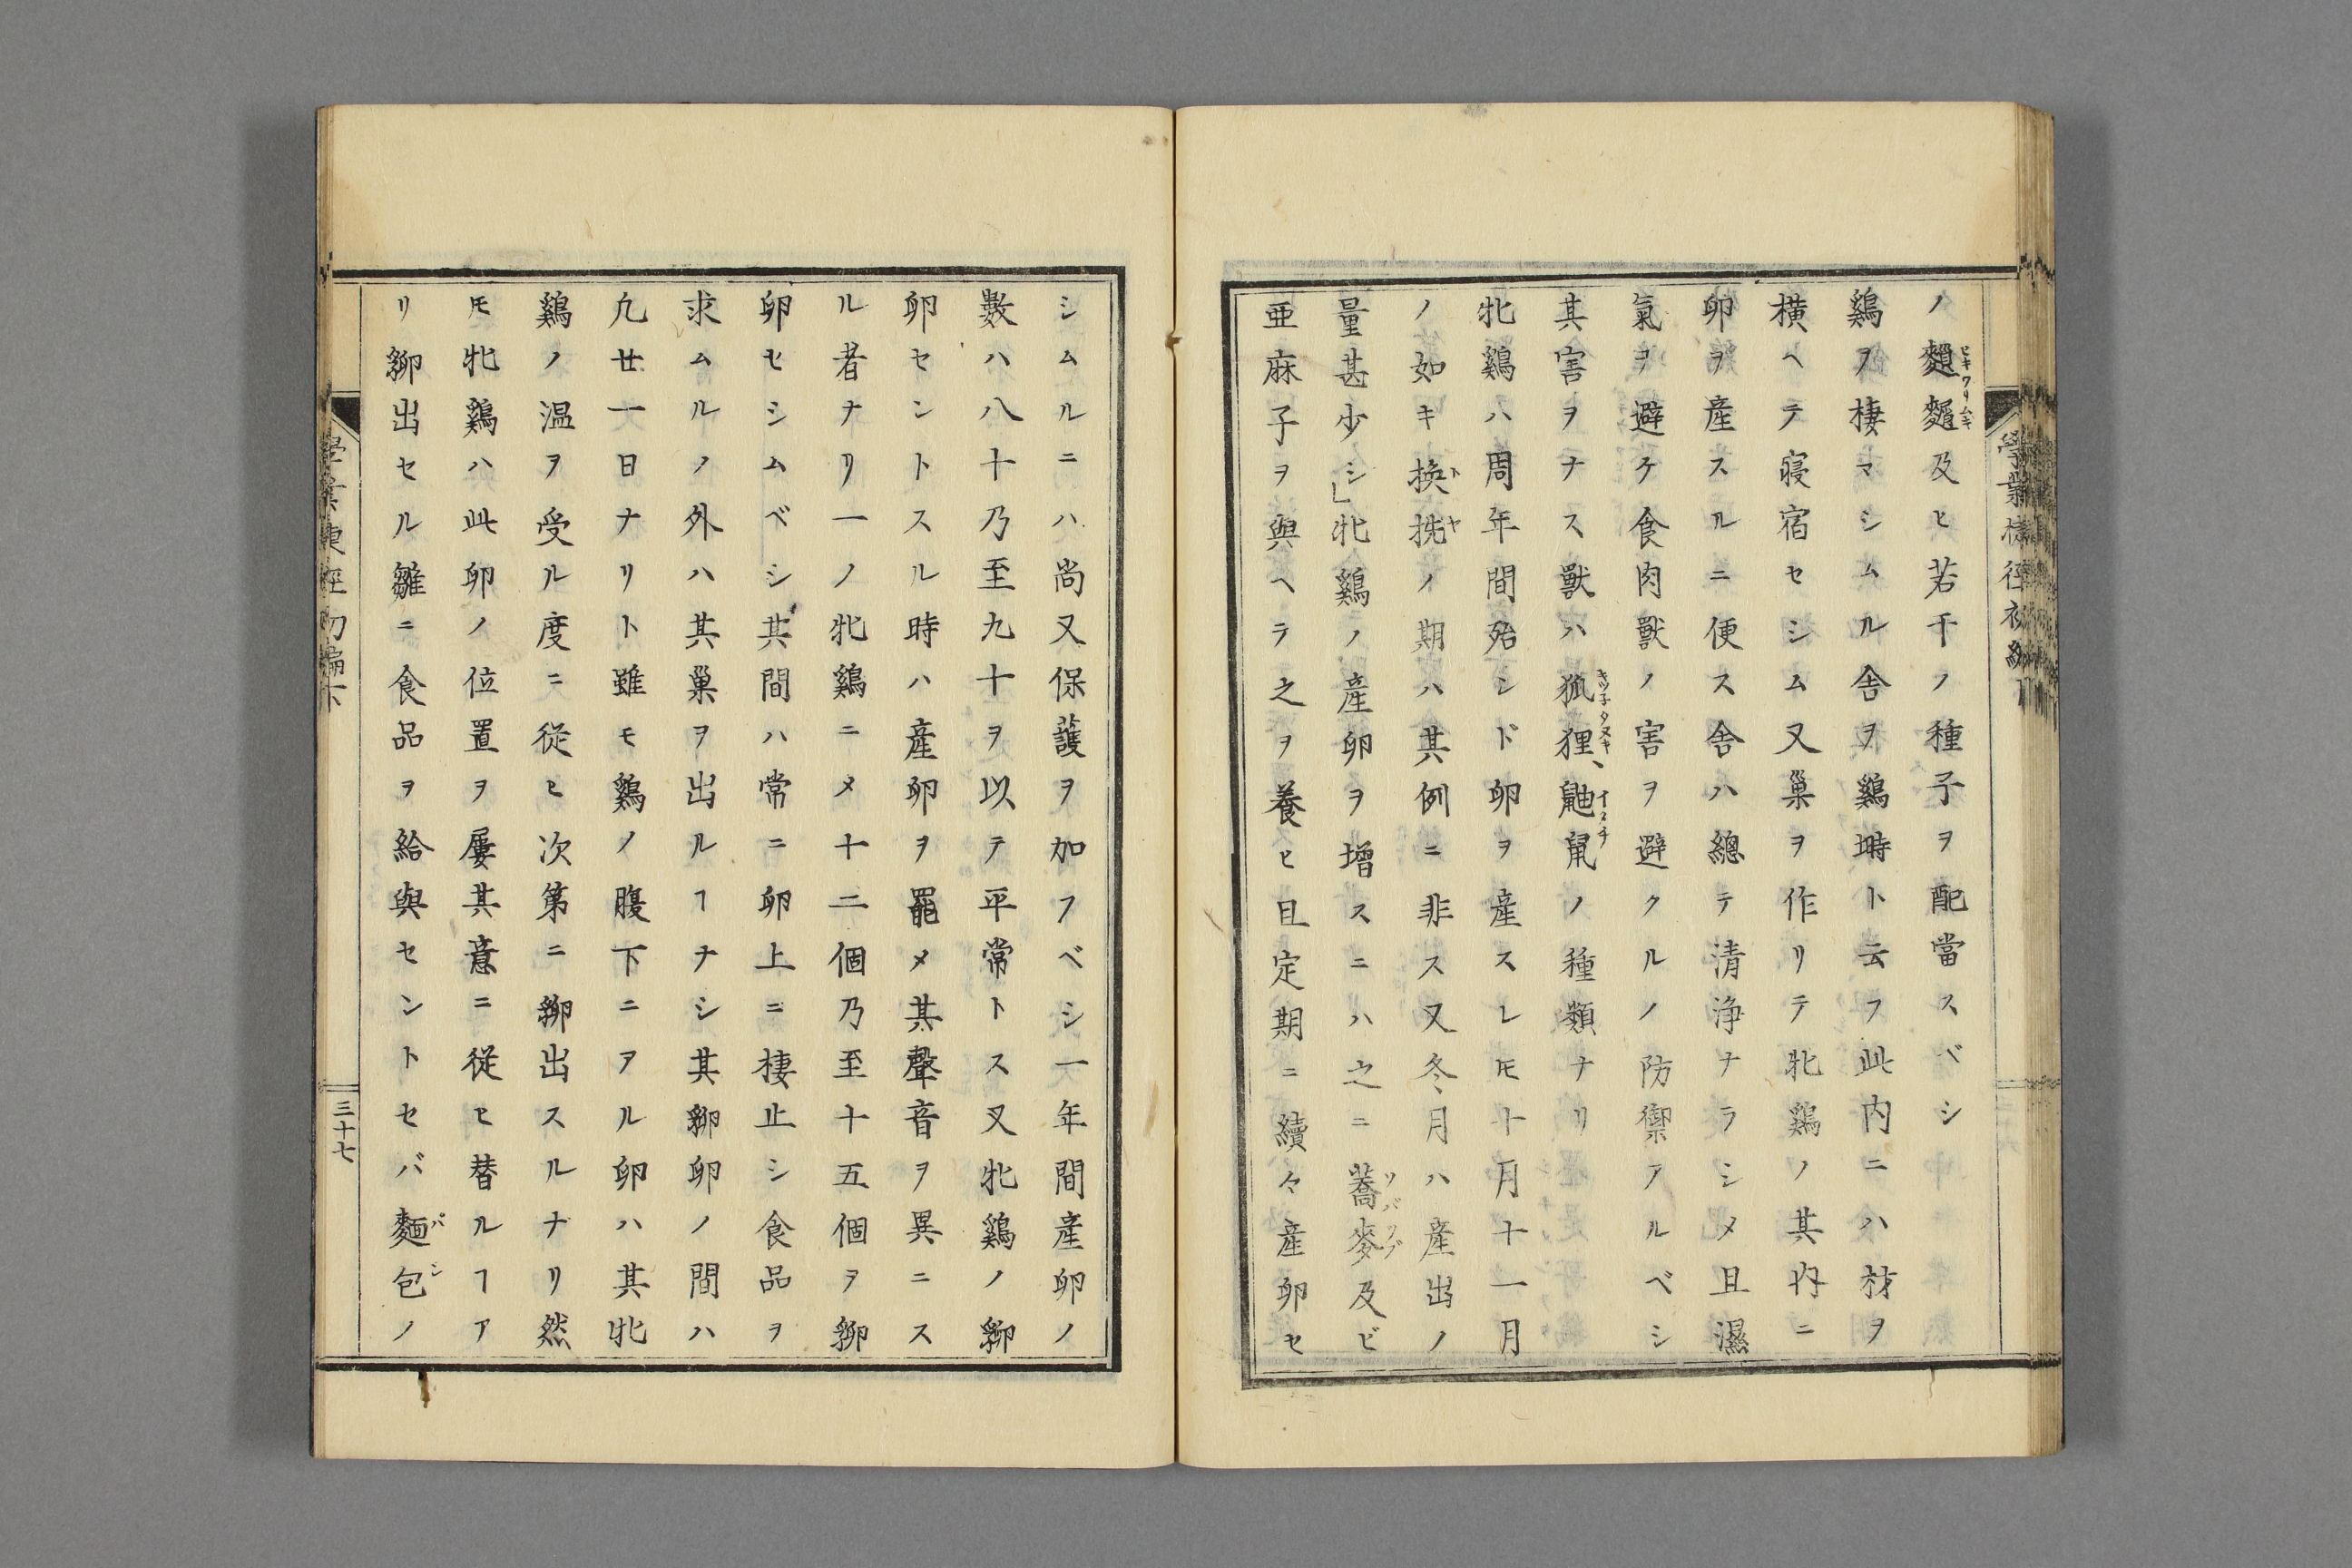 ノ麹麺及ヒ若干ノ種子ヲ配當スベシ
鷄ヲ棲マシムル舎ヲ鷄塒ト云フ此内ニハ材ヲ
横ヘテ寝宿セシム又巢ヲ作リテ牝鷄ノ其内ニ
卵ヲ産スルニ便ス舎ハ總テ清浄ナラシメ且濕
氣ヲ避ケ食肉獸ノ害ヲ避クルノ防禦アルベシ
其害ヲナス獸ハ狐狸、鼬鼠ノ種類ナリ
牝鷄ハ周年間殆ンド卵ヲ産スレ𪜈十月十一月
ノ如キ換毛ノ期ハ其例ニ非ス又冬月ハ産出ノ
量甚少シ」牝鷄ノ産卵ヲ增スニハ之ニ蕎麥及ビ
亜麻子ヲ與ヘテ之ヲ養ヒ且定期ニ續々産卵セ
シムルニハ尚又保護ヲ加フベシ一年間産卵ノ
數ハ八十乃至九十ヲ以テ平常トス又牝鷄ノ孵
卵セントスル時ハ産卵ヲ罷メ其聲音ヲ異ニス
ル者ナリ一ノ牝鷄ニメ十二個乃至十五個ヲ孵
卵セシムベシ其間ハ常ニ卵上ニ棲止シ食品ヲ
求ムルノ外ハ其巢ヲ出ルヿナシ其孵卵ノ間ハ
凢廿一日ナリト雖モ鷄ノ腹下ニアル卵ハ其牝
鷄ノ温ヲ受ル度ニ從ヒ次第ニ孵出スルナリ然
𪜈牝鷄ハ此卵ノ位置ヲ屢其意ニ從ヒ替ルヿア
リ孵出セル雛ニ食品ヲ給與セントセバ麵包ノ
三十七